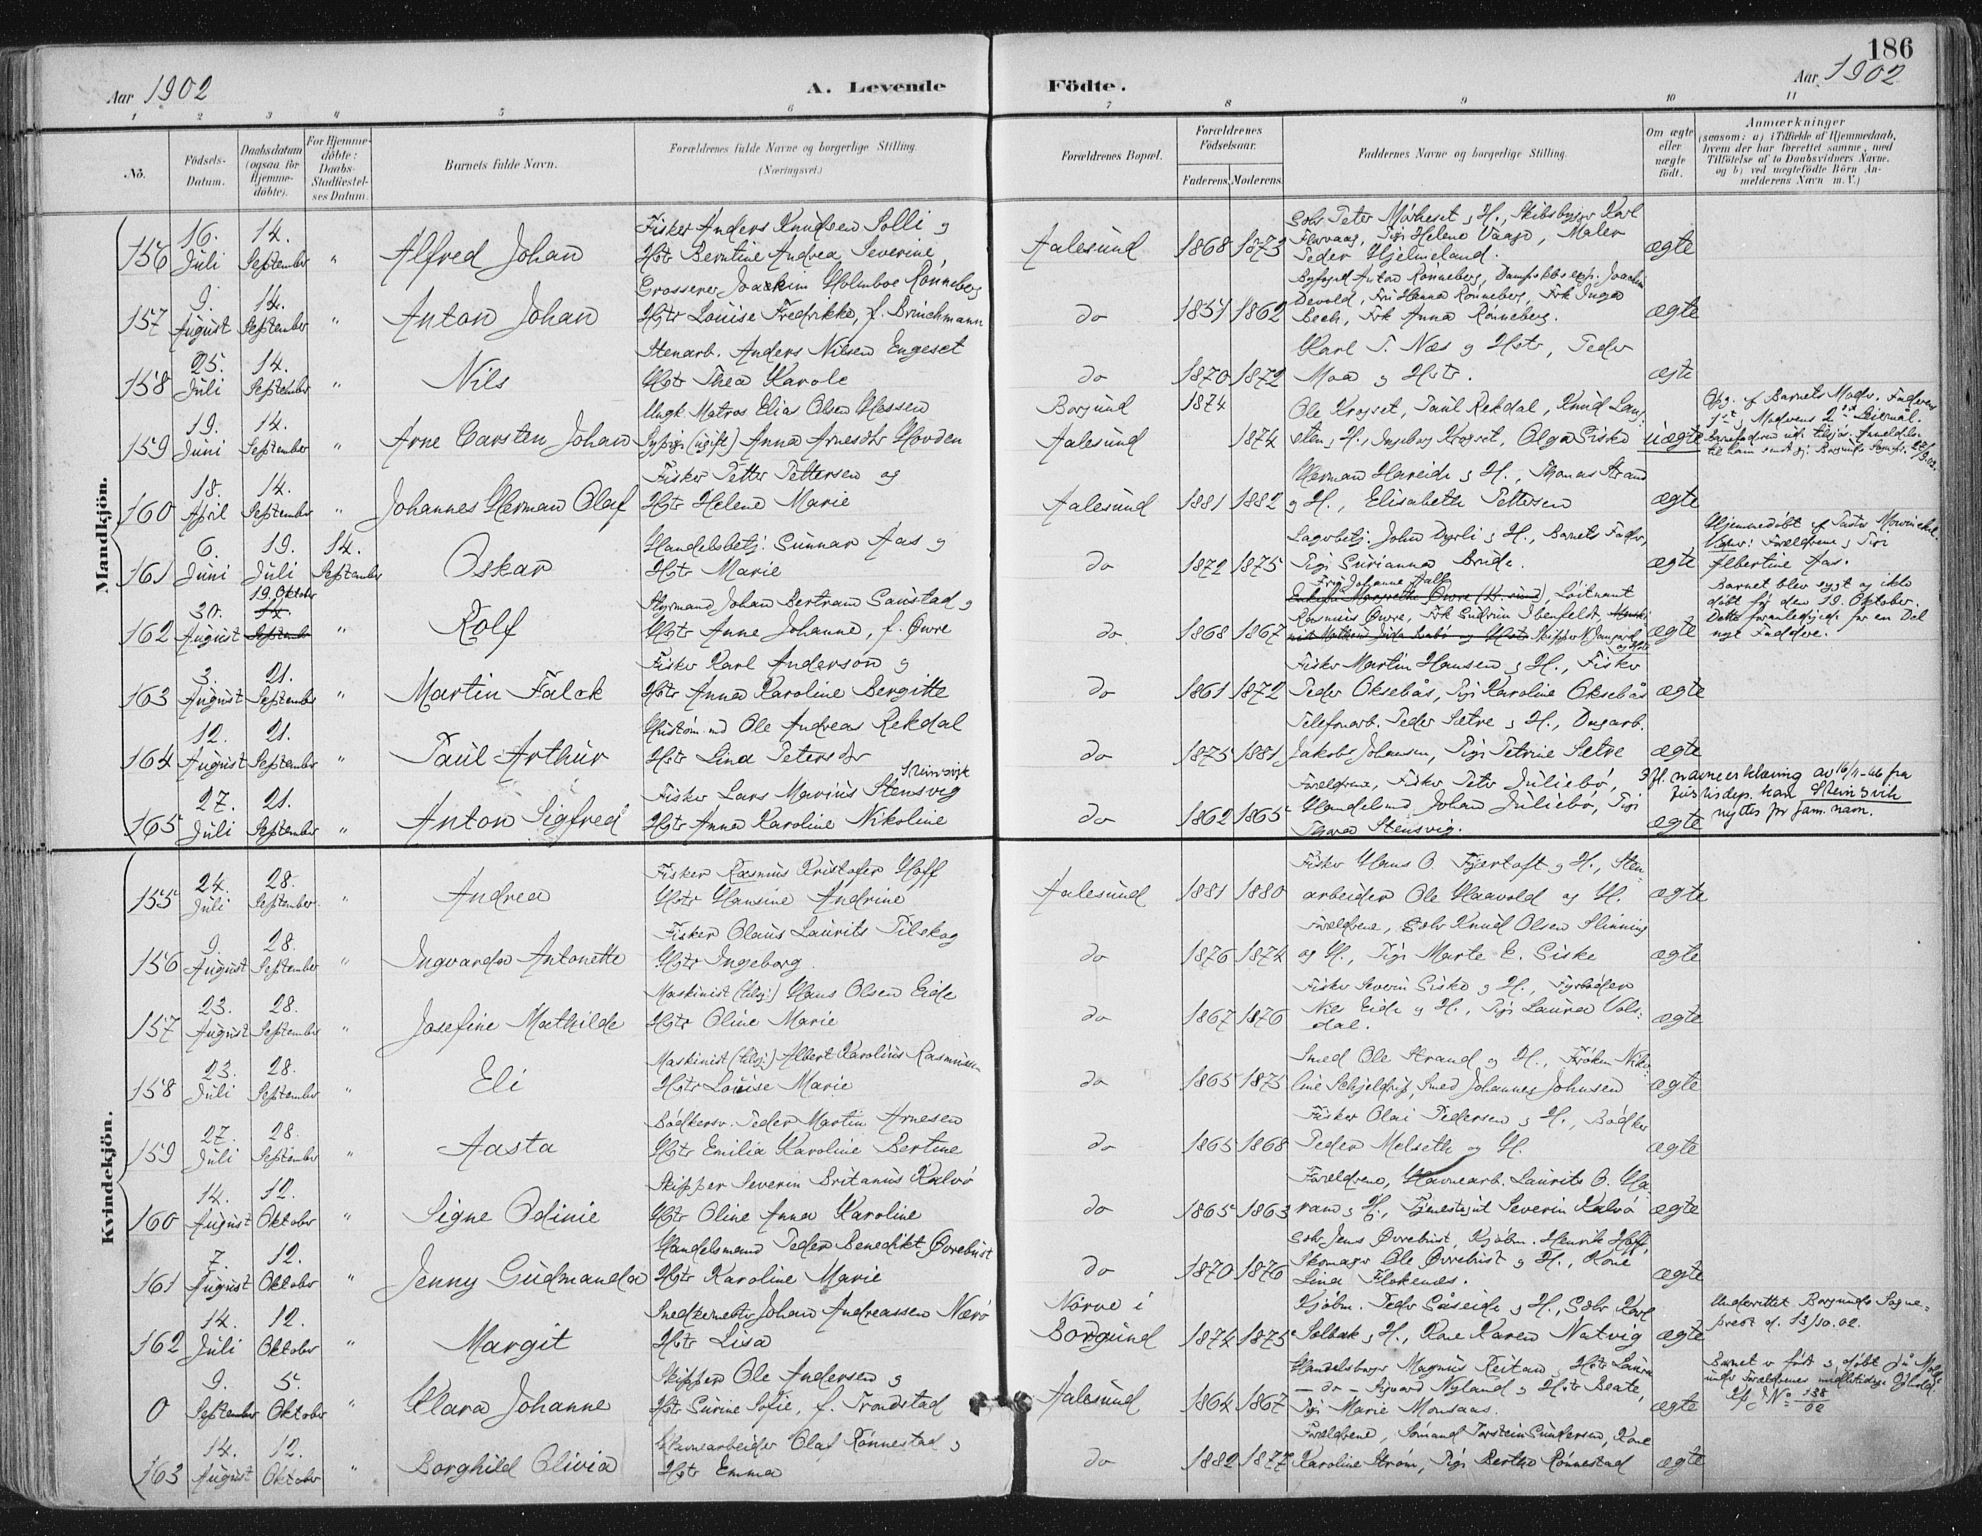 186
Aar 1902
A. Levende
Födte.
Aar 1902
1 2 3 4 5 6 7 8 9 10 11
No.
Födsels-Datum.
Daabsdatum (ogsaa for Hjemme-döbte).
For Hjemme-döbte: Daabs-Stadfæstel-ses Datum.
Barnets fulde Navn.
Forældrenes fulde Navne og borgerlige Stilling.
(Næringsvei.)
Forældrenes Bopæl.
Forældrenes Födselsaar.
Faderens. Moderens.
Faddernes Navne og borgerlige Stilling.
Om ægte eller uægte födt.
Anmærkninger
(saasom: a) i Tilfælde af Hjemmedaab, hvem der har forrettet samme, med Tilföielse af to Daabsvidners Navne, og b) ved uægtefödte Börn An-melderens Navn m. V.)
Mandkjön.
156 16. Juli 14. September " Alfred Johan
Fisker Anders Knudsen Solli og
Hstr Berntine Andrea Severine
Aalesund 1868 1873
Peder Hjelmeland.
ægte
157 9. August 14. September " Anton Johan
Grosserer Joachim Holmboe Rønneberg
Hstr Louise Fredrikke, f. Brinchmann
do 1851 1862
Devold, Fru Hanna Rønneberg, Frk Inga
Bech, Frk Anna Rønneberg.
ægte
158 25. Juli 14. September " Nils
Stenarb. Anders Nilsen Engeset
Hstr Thea Karole
do 1870 1872
Karl P. Næs og Hstr, Peder
Moa og Hstr.
ægte
159 19. Juni 14. September " Arne Carsten Johan
Ungk. Matros Elias Olsen Hessen
Sypige (ugift) Anna Arnesdtr Hovden
Borgund 1874
Aalesund 1874
Ole Krogset, Paul Rekdal, Knud Lang-
sten, H., Ingeborg Krogset, Olga Siske
uægte
160 18. April 14. September " Johannes Herman Olaf
Fisker Petter Pettersen og
Hstr Helene Marie
Aalesund 1881 1882
Herman Hareide og H., Thomas Strand
og H., Elisabeth Pettersen
ægte
161 6. Juni 19. Juli 14. September Oskar
Handelsbetj. Gunnar Aas og
Hstr Marie
do 1872 1875
Lagerbetj. John Dyrli og H., Barnets Fader,
Pige Gurianna Brude.
ægte
Albertine Aas.
162 30. August 19. Oktober 14. September " Rolf
Styrmand Johan Bertram Saustad og
Hstr Anne Johanne, f. Øwre
do 1868 1867
ægte
Barnet blev sygt og ikke
døbt før den 19. Oktober.
Dette foranledigede for en Del
nye Faddere.
163 3. August 21. September " Martin Falck
Fisker Karl Anderson og
Hstr Anna Karoline Bergitte
do 1861 1872
Fisker Martin Hansen og H., Fisker
Peder Oksebås, Pige Karoline Oksebås
ægte
164 12. August 21. September " Paul Arthur
Ole Andreas Rekdal
Hstr Lina Petersdtr
do 1875 1881
Telefonarb. Peder Sætre og H., Dagarb.
Jakob Johansen, Pige Petrine Sætre
ægte
165 27. Juli 21. September " Anton Sigfred
Steinsvik
Fisker Lars Marius Stensvig
Hstr Anna Karoline Nikoline
do 1862 1865
Forældrene, Fisker Peter Juliebø,
Handelsmd Johan Juliebø, Pige
Thora Stensvig.
ægte
Ifl. navneerklæring av 16/11-46 fra
Justisdep. kan Steinsvik
nyttes for fam.navn.
Kvindekjön.
155 24. Juli 28. September " Andrea
Fisker Rasmus Kristofer Hoff
Hstr Hansine Andrine
Aalesund 1881 1880
Fisker Hans O. Fjørtoft og H., Sten-
arbeider Ole Haavold og H.
ægte
156 9. August 28. September " Ingvarda Antonette
Fisker Olaus Laurits Filskog
Hstr Ingeborg
do 1876 1874
Forældrene, Gbr Knud Olsen Slinning
og H., Pige Marte E. Giske
ægte
157 23. August 28. September " Josefine Mathilde
Maskinist (tils.) Hans Olsen Eide
Hstr Oline Marie
do 1867 1876
Fisker Severin Giske og H., Fyrbøder
Nils Eide og H., Pige Laura Vols-
dal.
ægte
158 23. Juli 28. September " Eli
Maskinist (tils.) Albert Karolius Rasmussen
Hstr Louise Marie
do 1865 1875
Smed Ole Strand og H., Frøken Niko-
line Schjeldrup, Smed Johannes Johnsen
ægte
159 27. Juli 28. September " Aasta
Bødkersv. Peder Martin Arnesen
Hstr Emilia Karoline Bertine
do 1865 1868
Fisker Olai Pedersen og H., Bødker
Peder Melseth og H.
ægte
160 14. August 12. Oktober " Signe Odinie
Skipper Severin Britanius Kalvø
Hstr Oline Anna Karoline
do 1865 1863
Forældrene, Havnearb. Laurits O. Ha-
ram og H., Tjenestegut Severin Kalvø
ægte
161 7. August 12. Oktober " Jenny Gudmanda
Handelsmand Peder Benedikt Øvrebust
Hstr Karoline Marie
do 1870 1876
Gbr Jens Øvrebust, Kjøbm. Henrik Hoff,
Skomager Ole Øvrebust og H., Kone
Lina Flokenes.
ægte
162 14. Juli 12. Oktober " Margit
Snedkermester Johan Andreassen Nærø
Hstr Lisa
Nørve i
Borgund 1874 1875
Kjøbm. Peder Gåseide og H., Gbr Karl
Solbak og H., Kone Karen Natvig
ægte
Underrettet Borgunds Sogne-
prest d. 13/10.02.
0 9. September 5. Oktober " Klara Johanne
Skipper Ole Andersen og
Hstr Gurine Sofie, f. Trondstad
Aalesund 1864 1867
Handelsborger Magnus Reitan, Hstr Laura
- do - Sigvard Nyland og Hstr Beate,
Pige Marie Monsaas.
ægte
163 14. August 12. Oktober " Borghild Olivia
Havnearbeider Olaf Rønnestad og
Hstr Emma
do 1882 1877
Forældrene, Sømand Torstein Gundersen, Kone
Karoline Strøm, Pige Berthe Rønnestad
ægte